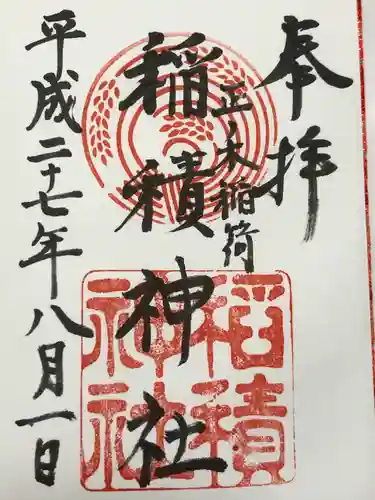 奉拝
正ノ木稲荷
稲積神社
平成二十七年八月一日
稲積
神社